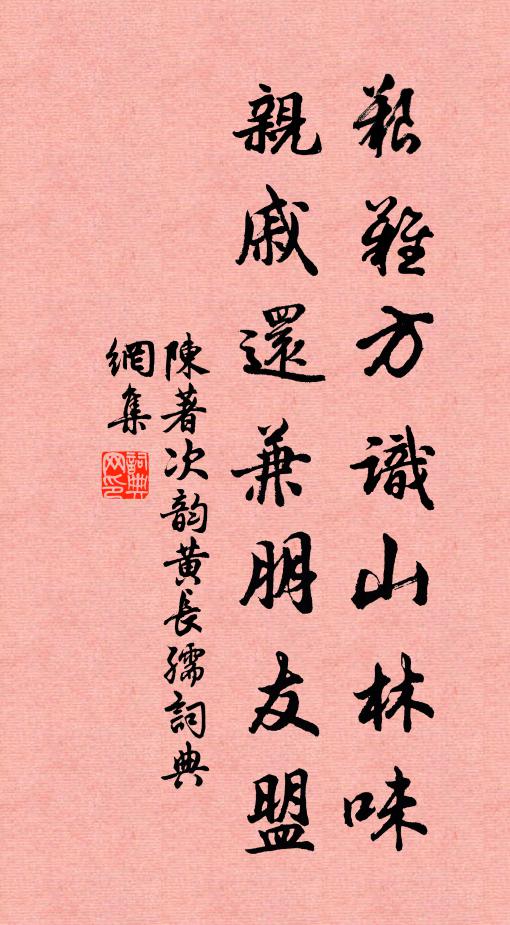 艱難方識山林味
親戚還兼朋友盟
陳著次韵黄長孺詞典
網集
詞典网印